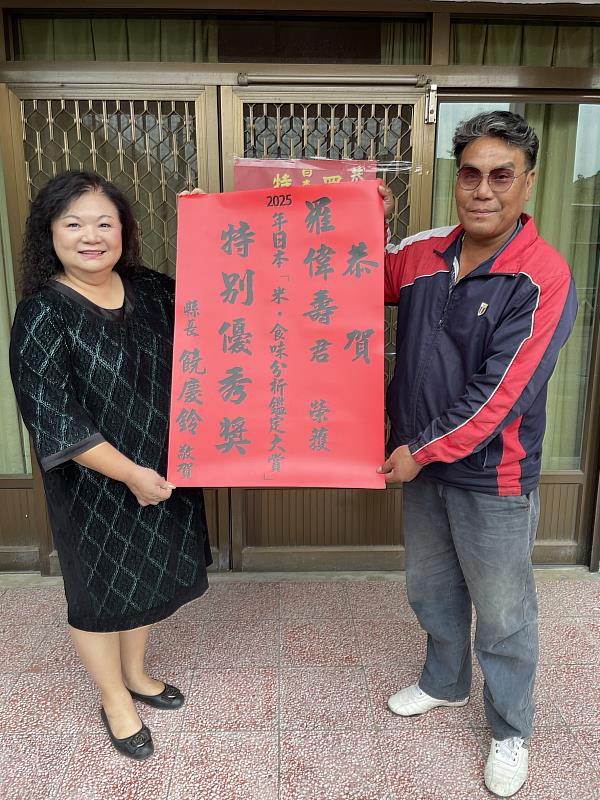 恭賀
羅偉壽君 榮獲
2025年日本「米・食味分析鑑定大賞」
特別優秀獎
縣長 饒慶鈴 敬賀